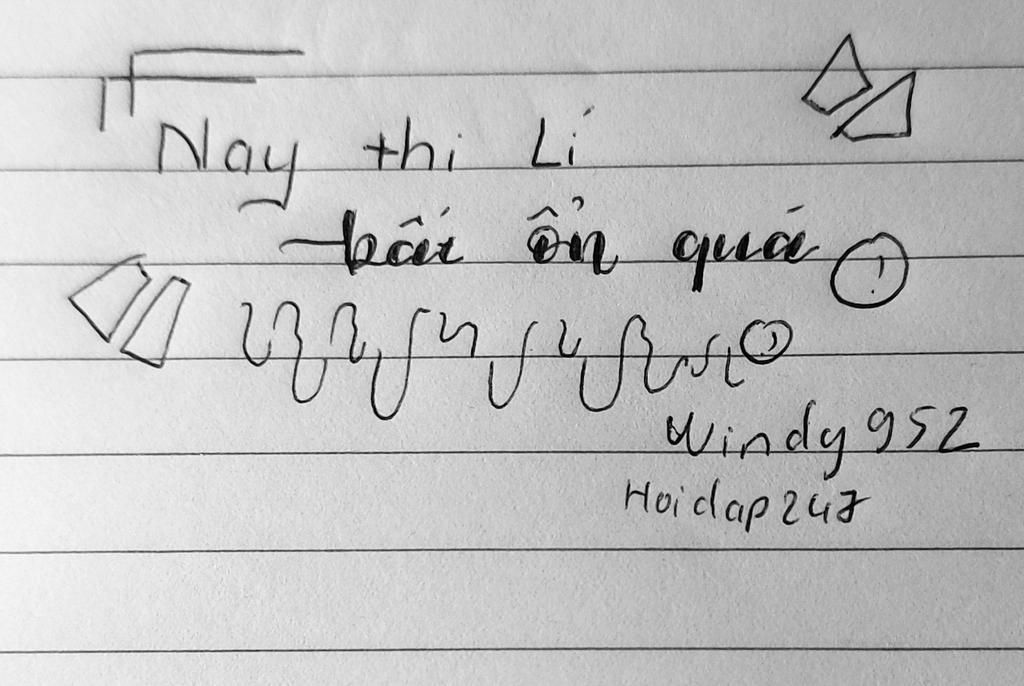 Nay thi Lí
bất ổn quá !
Windy952
Hoidap247